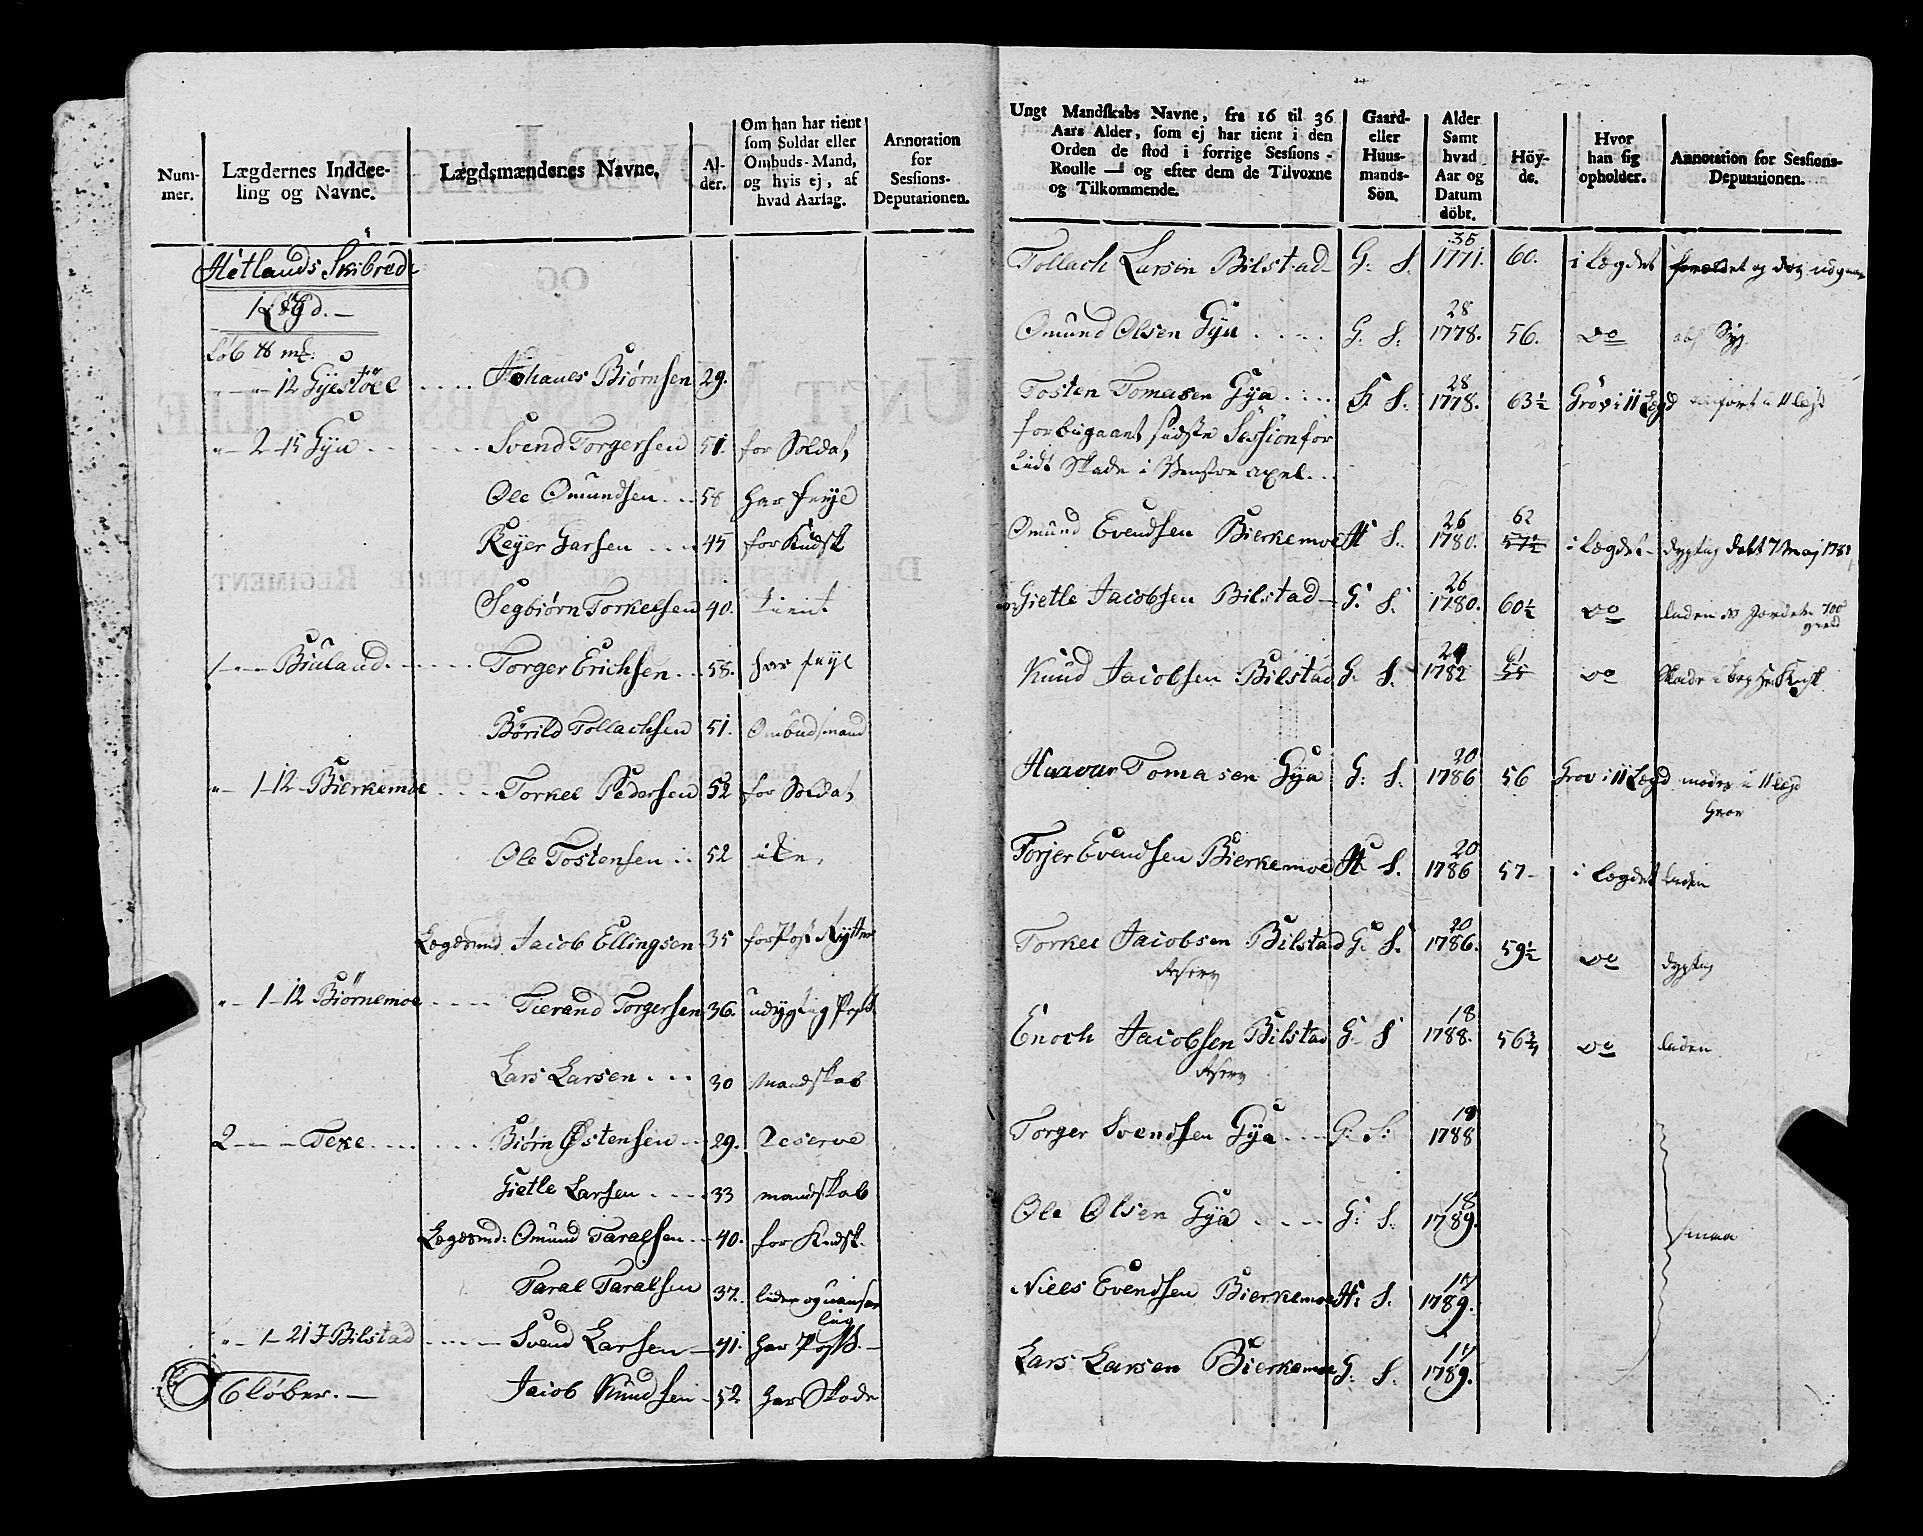 Num-
mer.
Lægdernes Inddee-
ling og Navne.
Lægdsmændenes Navne.
Al-
der.
Om han har tient
som Soldat eller
Ombuds-Mand,
og hvis ej, af
hvad Aarsag.
Annotation
for
Sessions-
Deputationen.
Hetlands Skibrede
1 Lægd. —
Løb ꝶ mk:
" — " — 12 Gyestöel . . . . Johanes Biørnsen 29.
" — 2 — 15 Gya . . . . Svend Torgersen 51. for Soldat
Ole Omundsen . . 58 har feyl
Reyer Garsen . . . . 45 for Kudsk
Segbiørn Torkelsen 40. tient
1 — " — Biuland . . . . Torger Erichsen . . 58. har feyl
Børild Tollachsen 51. Ombudsmand
" — 1 — 12 Bierkemoe . . . . Torkel Pedersen 52 for Soldat
Ole Tostensen . . 52
Lægdsmd Jacob Ellingsen 35
" — 1 — 12 Biörnemoe . . . . Tierand Torgersen 36. udygtig
Lars Larsen . . . 30 Mandskab
2 — " — Texe . . . . Biørn Østensen . . 29. Reserve
Gietle Larsen . . . . 33 mandskab
Lægdsmd: Omund Taralsen . . 40. for Kudsk.
Taral Taralsen 37.
" — 1 — 21 Bilstad . . . . Svend Larsen — 41. har
6 løber. — Jacob Knudsen — 52 har Skade
Ungt Mandskabs Navne, fra 16 til 36
Aars Alder, som ej har tient i den
Orden de stod i forrige Sessions-
Roulle — og efter dem de Tilvoxne
og Tilkommende.
Gaard-
eller
Huus-
mands-
Sön.
Alder
Samt
hvad
Aar og
Datum
döbt.
Höy-
de.
Hvor
han sig
opholder.
Annotation for Sessions-
Deputationen.
35
Tollach Larsen Bilstad — G: S. 1771. 60. i Lægdet og udgaar
28
Omund Olsen Gya . . . . G: S. 1778. 56. do
28
Tosten Tomasen Gya . . . . G: S. 1778. 63½ Grov i 11 Lægd
forbigaaet sidste Session for
lidt Skade i Venstre axel . . .
26 62
Omund Evendsen Bierkemoe H: S. 1780. 57½ i Lægdet dygtig döbt 7 Maj 1781
26
Gietle Jacobsen Bilstad — G: S. 1780. 60½ do
24 61
Knud Jacobsen Bilstad G: S. 1782 55 do
20
Haavar Tomasen Gya G: S. 1786 56 Grov i 11 Lægd
20
Torjer Evendsen Bierkemoe H: S. 1786 57 — i Lægdet liden
20
Torkel Jacobsen Bilstad G: S. 1786. 59½ do dygtig
18
Enoch Jacobsen Bilstad G: S 1788. 56¾ do liden
18
Torger Svendsen Gya . . . G: S: 1788
18
Ole Olsen Gya . . . . G: S: 1789. smaa
17
Niels Evendsen Bierkemoe H: S. 1789.
17
Lars Larsen Bierkemoe G: S. 1789.